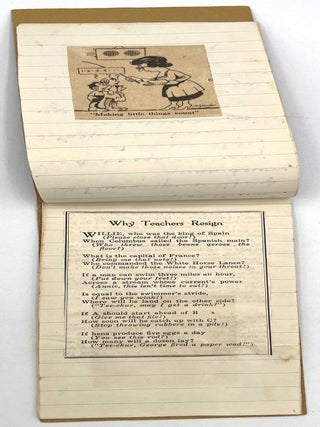 "Making little things count"
Why Teachers Resign
WILLIE, who was the king of Spain
(Please close that door!)
When Columbus sailed the Spanish main?
(Who threw those beans across the
floor?)
What is the capital of France?
(Bring me that note!)
Who commanded the White Horse Lance?
(Don't make those noises in your throat!)
If a man can swim three miles an hour,
(Put down your feet!)
Across a stream whose current's power
(Annie, this isn't time to eat!)
Is equal to the swimmer's stride,
(I saw you wink!)
Where will he land on the other side?
("Tee-chur, may I get a drink?")
If A should start ahead of B
(Give me that file!)
How soon will he catch up with C?
(Stop throwing rubbers in a pile!)
If hens produce five eggs a day
(You see this rod?)
How many will a dozen lay?
("Tee-chur, George fired a paper wad!")